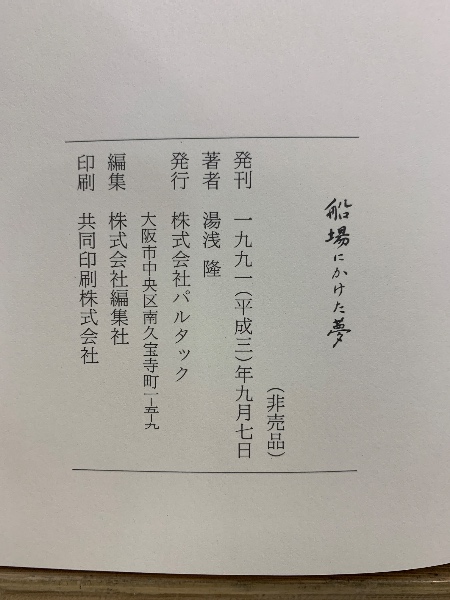 船場にかけた夢
（非売品）
発刊　一九九一（平成三）年九月七日
著者　湯浅　隆
発行　株式会社パルタック
大阪市中央区南久宝寺町一-五-九
編集　株式会社編集社
印刷　共同印刷株式会社